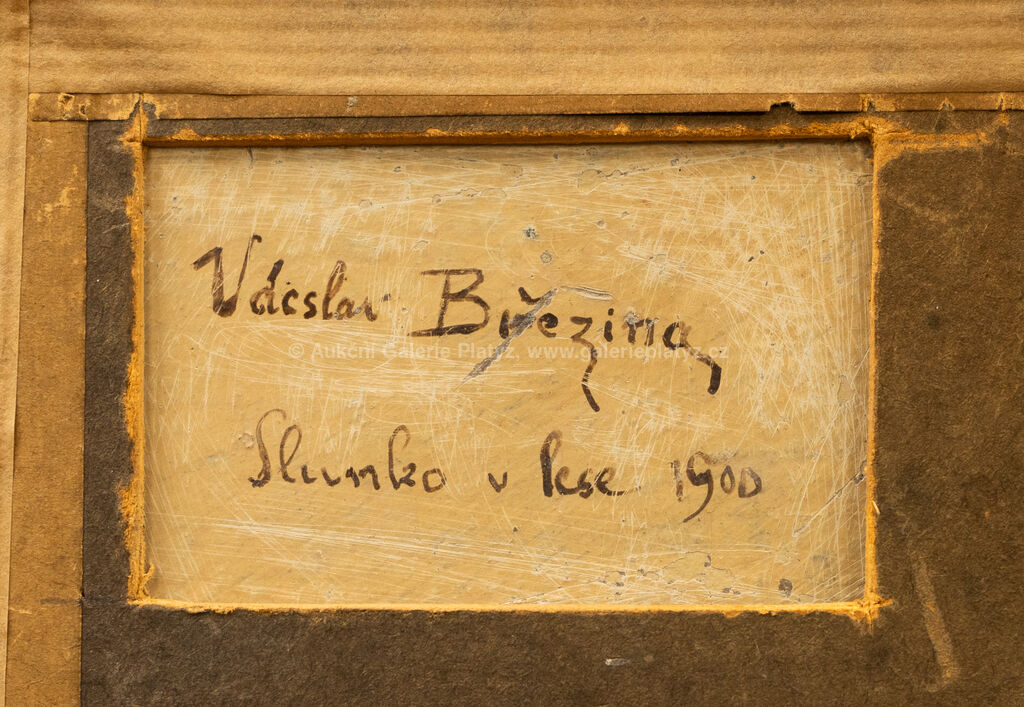 Václav Březina
© Aukční Galerie Platýz, www.galerieplatyz.cz
Slunko v lese 1900